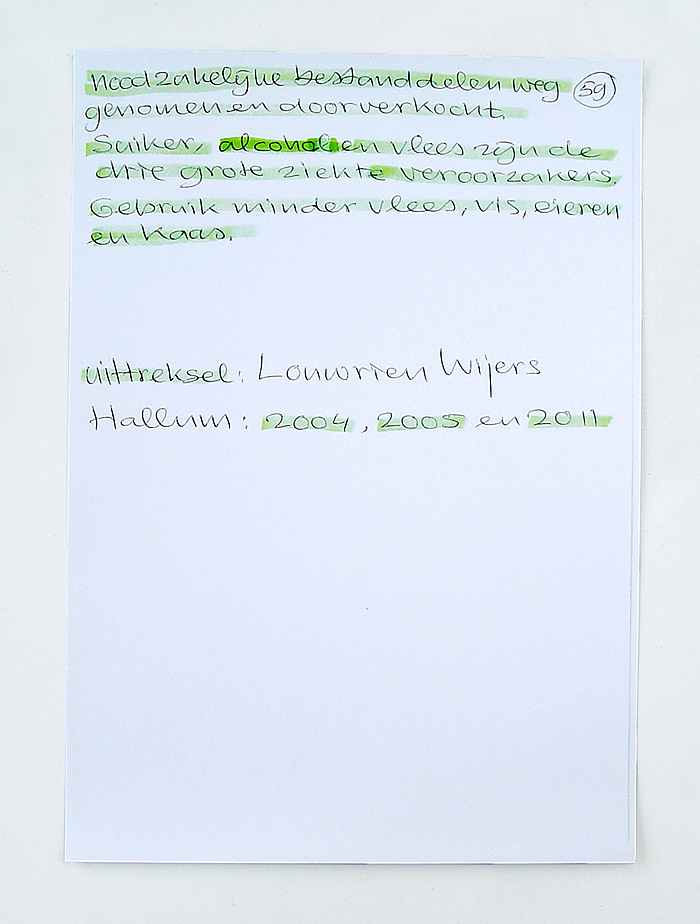 noodzakelijke bestanddelen weg 59
genomen en doorverkocht.
Suiker, alcohol en vlees zijn de
drie grote ziekte veroorzakers.
Gebruik minder vlees, vis, eieren
en kaas.
uittreksel: Louwrien Wijers
Hallum: 2004, 2005 en 2011